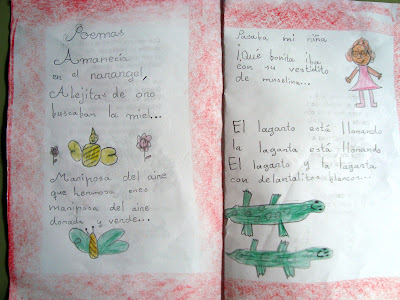 Poemas
Amanecía
en el naranjel,
Abejitas de oro
buscaban la miel...
Mariposa del aire
que hermosa eres
mariposa del aire
dorada y verde...
Pasaba mi niña
¡Qué bonita iba
con su vestidito
de muselina...
El lagarto está llorando
la lagarta está llorando
El lagarto y la lagarta
con delantalitos blancos...